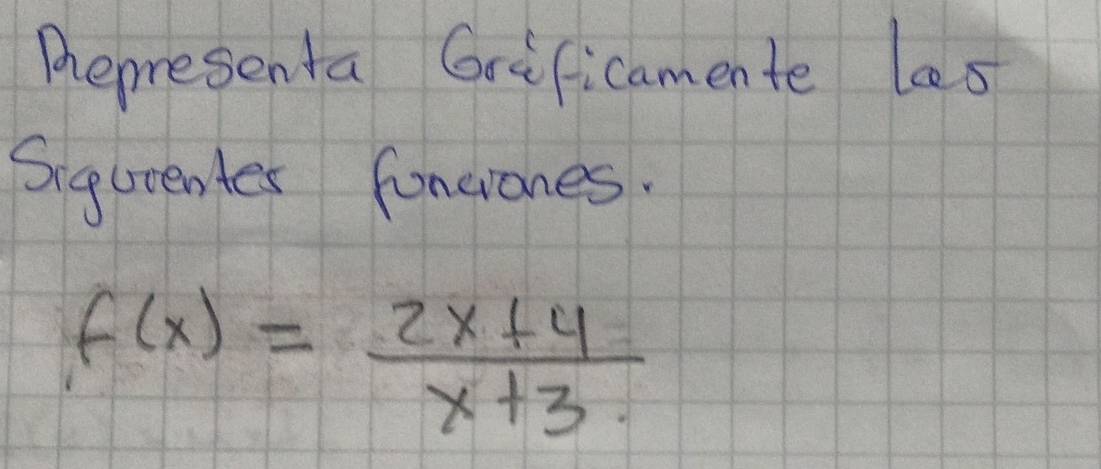 Representa Gráficamente las
Siguientes funciones.
f(x) = \frac{2x+4}{x+3}.